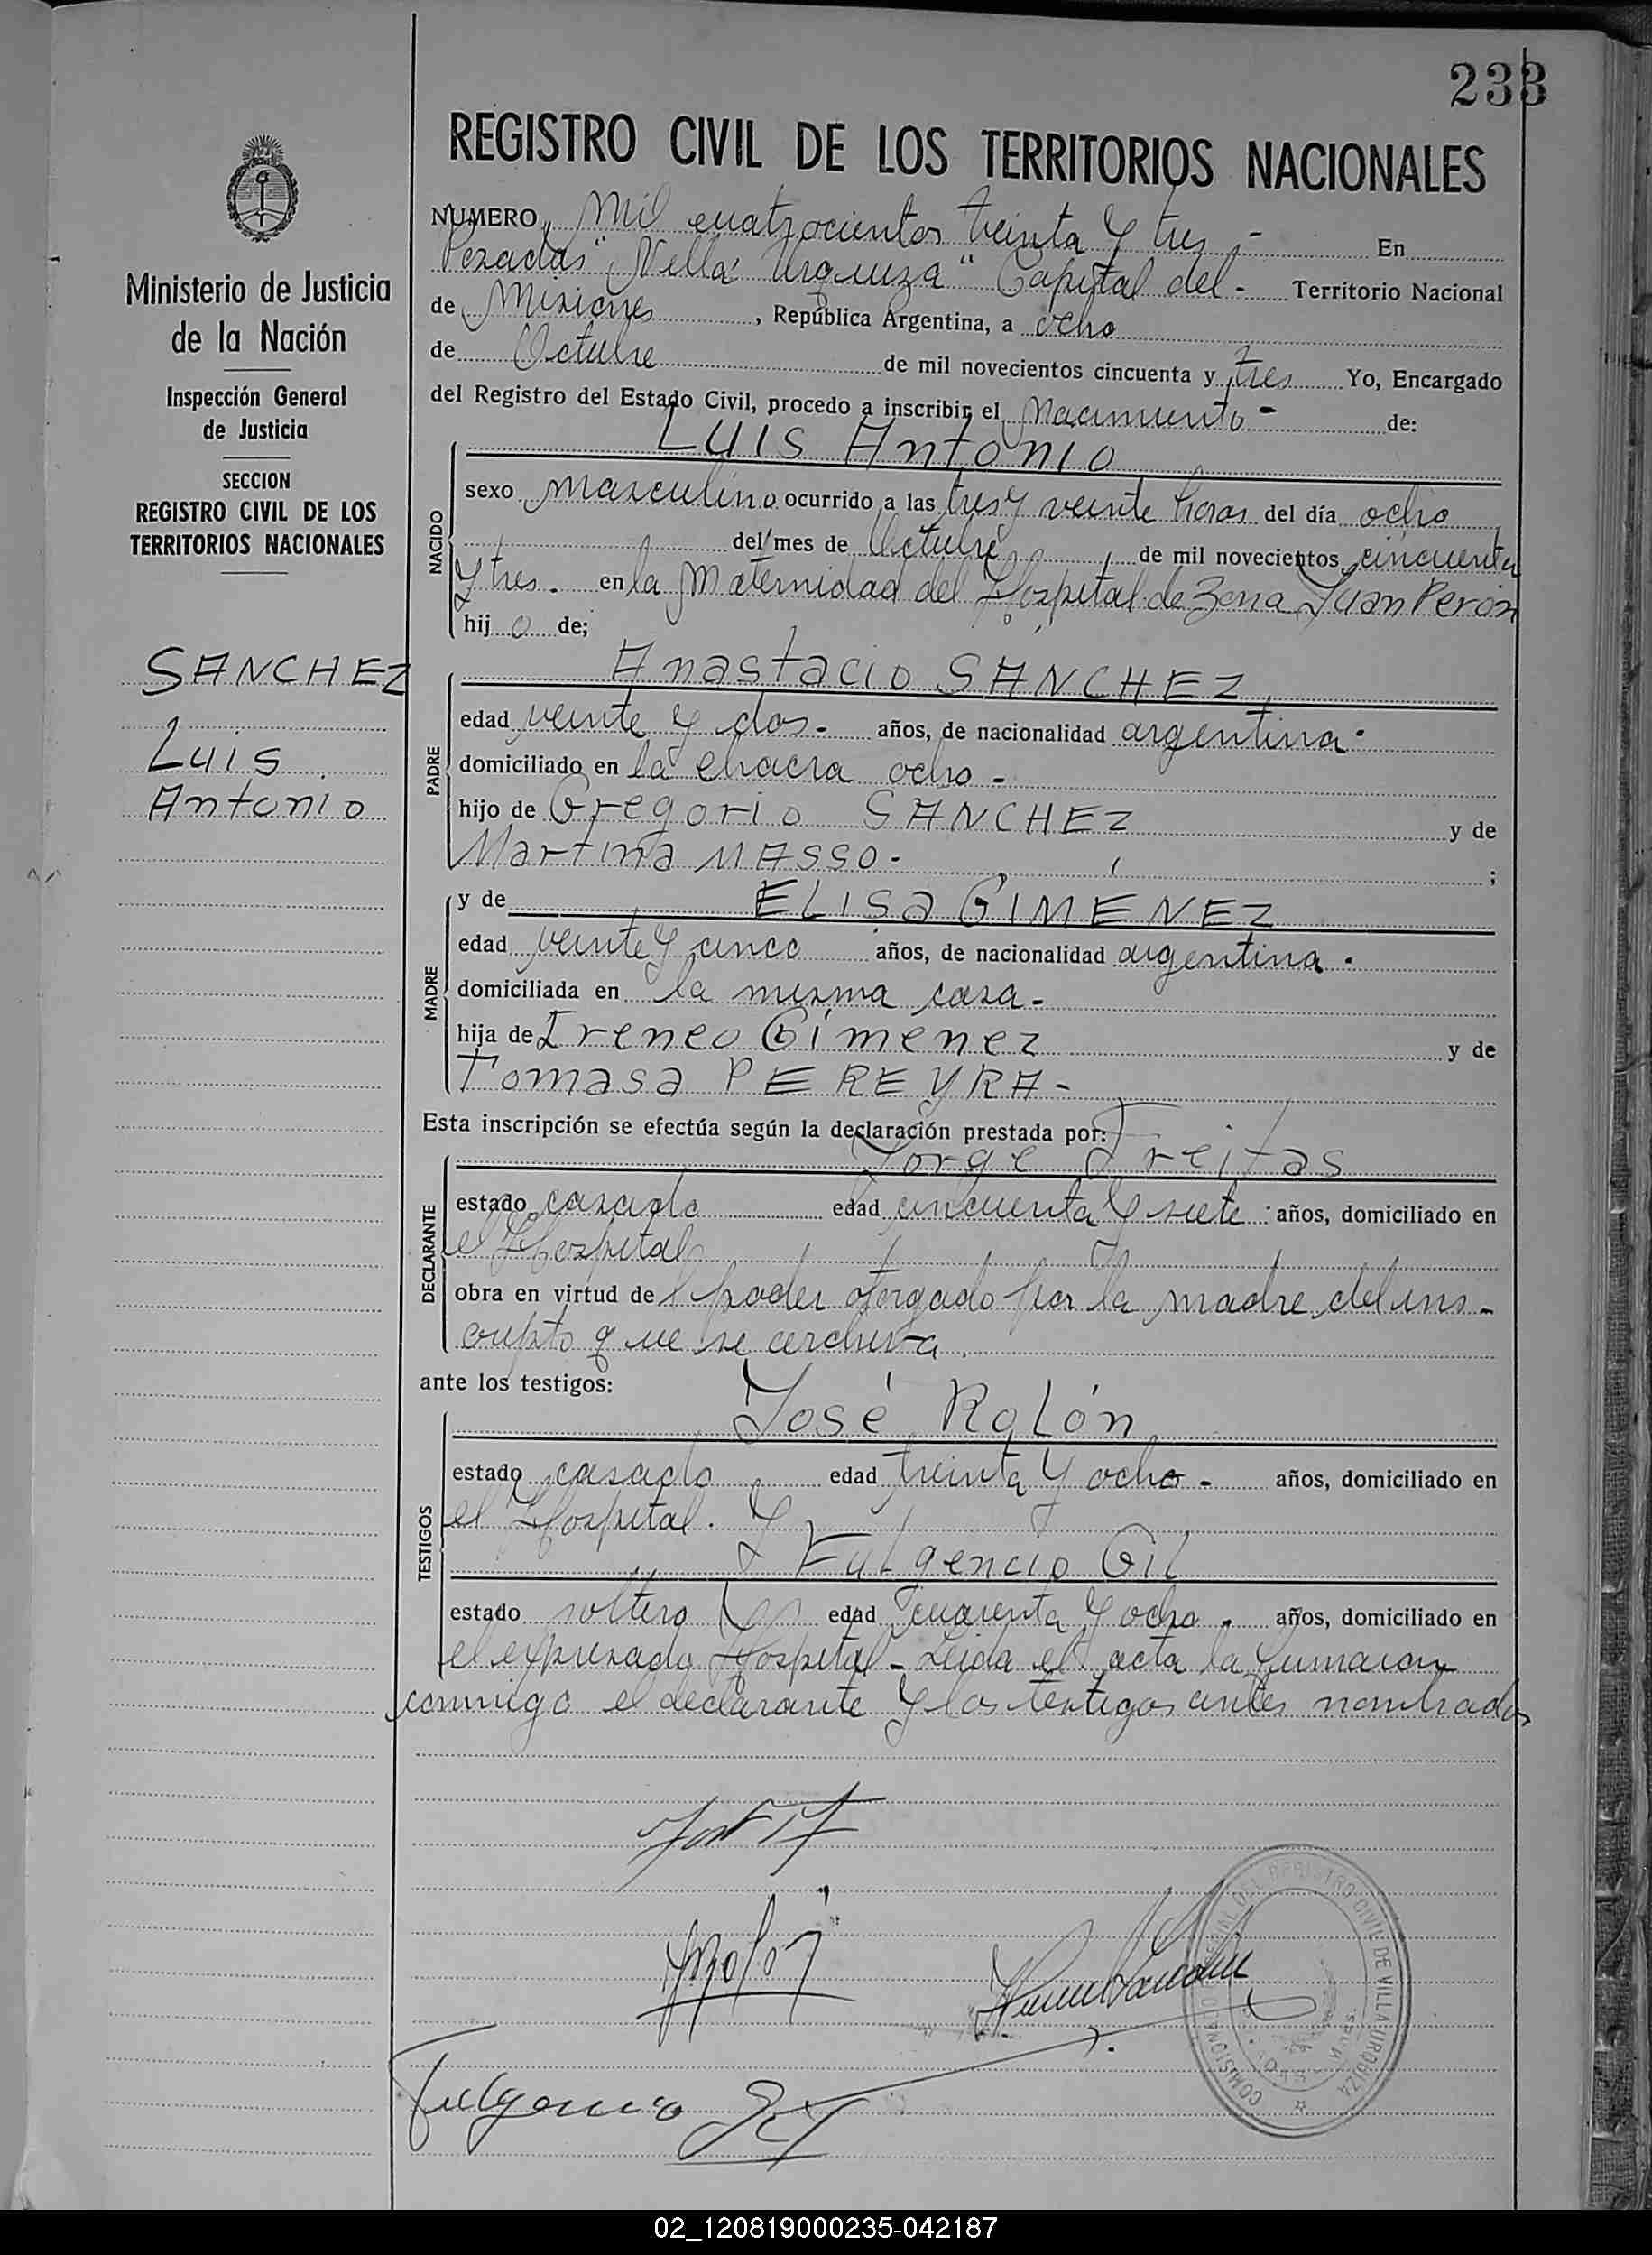 233
REGISTRO CIVIL DE LOS TERRITORIOS NACIONALES
Ministerio de Justicia
de la Nación
Inspección General
de Justicia
SECCION
REGISTRO CIVIL DE LOS
TERRITORIOS NACIONALES
SANCHEZ
Luis
Antonio
NUMERO Mil cuatrocientos treinta y tres.- En
Posadas "Villa Urquiza" Capital del - Territorio Nacional
de Misiones, República Argentina, a ocho
de Octubre de mil novecientos cincuenta y tres Yo, Encargado
del Registro del Estado Civil, procedo a inscribir el Nacimiento - de:
Luis Antonio
NACIDO
sexo masculino ocurrido a las tres y veinte horas del día ocho
del mes de Octubre de mil novecientos cincuenta
y tres. en la Maternidad del Hospital de Zona Juan Perón
hijo de;
Anastacio SANCHEZ
PADRE
edad veinte y dos.- años, de nacionalidad argentina.
domiciliado en la chacra ocho -
hijo de Gregorio SANCHEZ y de
Martina MASSO.- ;
y de ELISA GIMENEZ
MADRE
edad veinte y cinco años, de nacionalidad argentina.
domiciliada en la misma casa.-
hija de Ireneo Gimenez y de
Tomasa PEREYRA-
Esta inscripción se efectúa según la declaración prestada por:
Jorge Freitas
DECLARANTE
estado casado edad cincuenta y siete años, domiciliado en
el Hospital
obra en virtud del poder otorgado por la madre del ins-
cripto que se archiva.
ante los testigos:
José Rolón
TESTIGOS
estado casado edad treinta y ocho - años, domiciliado en
el Hospital. y
Fulgencio Gil
estado soltero edad cuarenta y ocho - años, domiciliado en
el expresado Hospital - Leida el acta la firmaron
conmigo el declarante y los testigos antes nombrados
JRolón
Fulgencio Gil
REGISTRO CIVIL DE VILLA URQUIZA
02_120819000235-042187